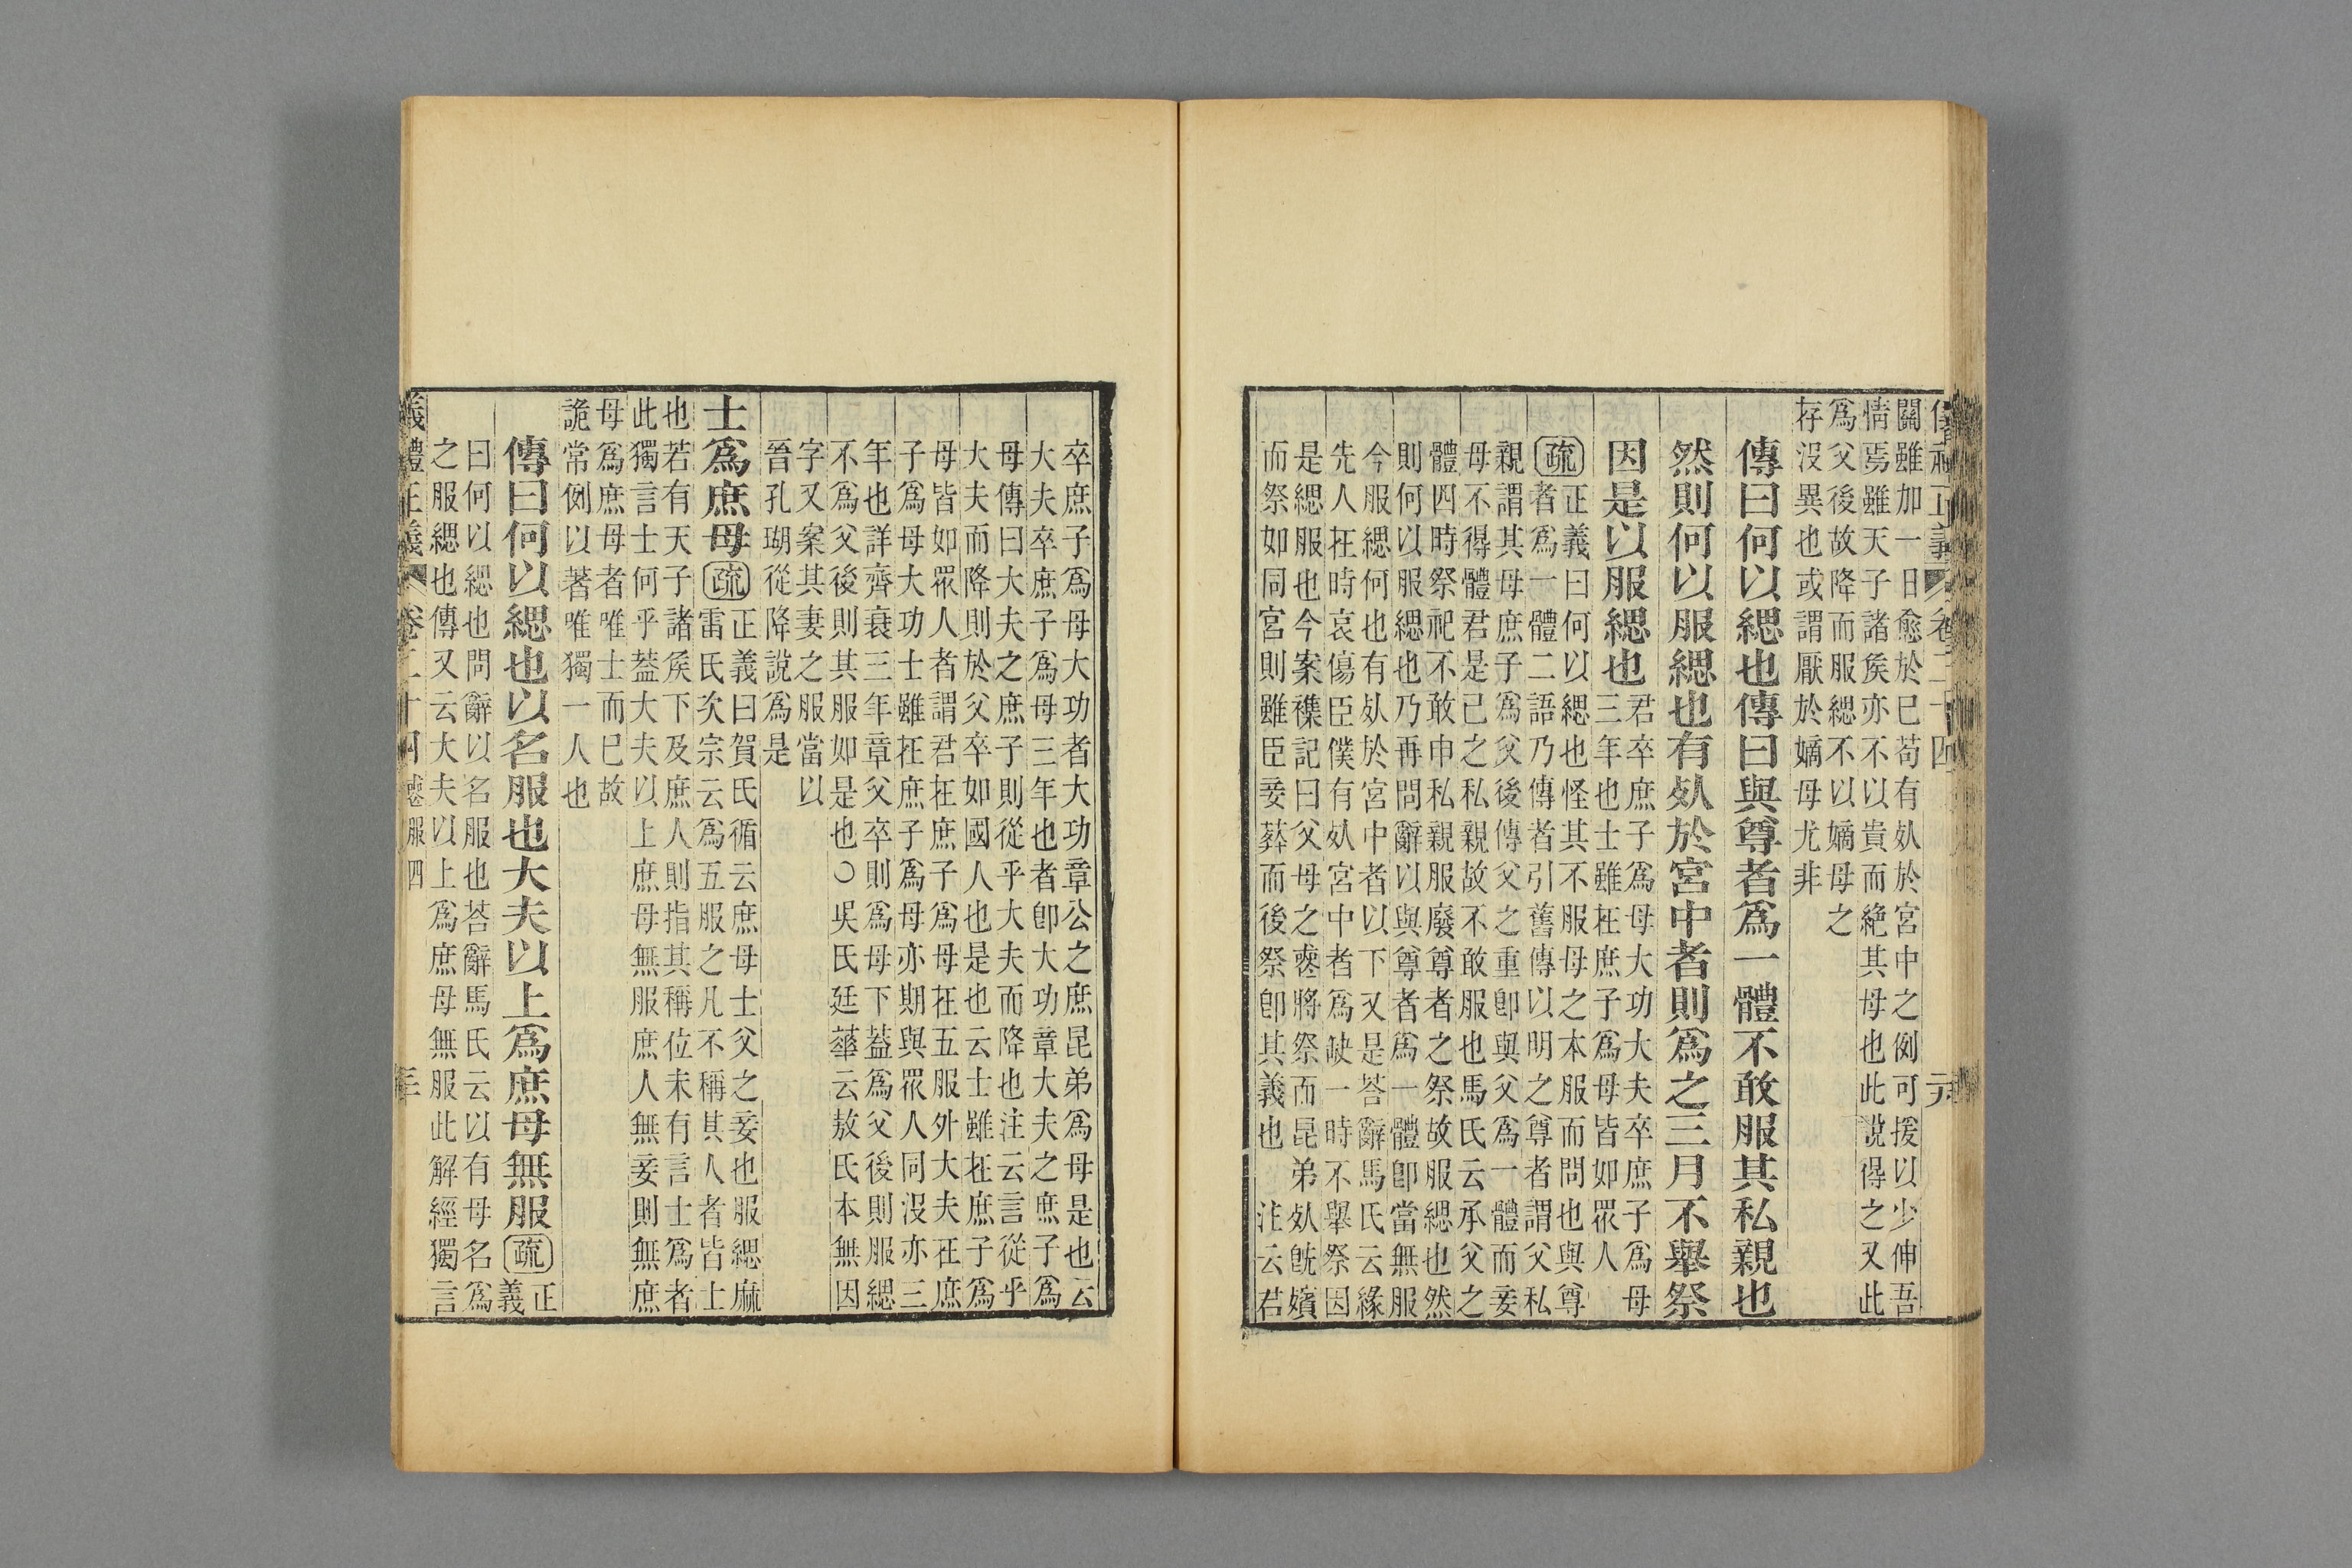 儀禮正義 卷二十四
關雖加一日愈於巳苟有𣦸於宮中之例可援以少伸吾
情焉雖天子諸矦亦不以貴而絶其母也此說得之又此
爲父後故降而服緦不以嫡母之
存沒異也或謂厭於嫡母尤非
傳曰何以緦也傳曰與尊者爲一體不敢服其私親也
然則何以服緦也有𣦸於宮中者則爲之三月不舉祭
因是以服緦也
君卒庶子爲母大功大夫卒庶子爲母
三年也士雖在庶子爲母皆如眾人
疏
正義曰何以緦也怪其不服母之本服而問也與尊
者爲一體二語乃傳者引舊傳以明之尊者謂父私
親謂其母庶子爲父後傳父之重卽與父爲一體而妾
母不得體君是已之私親故不敢服也馬氏云承父之
體四時祭祀不敢申私親服廢尊者之祭故服緦也然
則何以服緦也乃再問辭以與尊者爲一體卽當無服
今服緦何也有𣦸於宮中者以下又是荅辭馬氏云緣
先人在時哀傷臣僕有𣦸宮中者爲缺一時不舉祭因
是緦服也今案襍記曰父母之喪將祭而昆弟𣦸旣殯
而祭如同宮則雖臣妾葬而後祭卽其義也 注云君
卒庶子爲母大功者大功章公之庶昆弟爲母是也云
大夫卒庶子爲母三年也者卽大功章大夫之庶子爲
母傳曰大夫之庶子則從乎大夫而降也注云言從乎
大夫而降則於父卒如國人也是也云士雖在庶子爲
母皆如眾人者謂君在庶子爲母在五服外大夫在庶
子爲母大功士雖在庶子爲母亦期與眾人同沒亦三
年也詳齊衰三年章父卒則爲母下葢爲父後則服緦
不爲父後則其服如是也○吳氏廷華云敖氏本無因
字又案其妻之服當以
晉孔瑚從降說爲是
士爲庶母
疏
正義曰賀氏循云庶母士父之妾也服緦麻
雷氏次宗云爲五服之凡不稱其人者皆士
也若有天子諸矦下及庶人則指其稱位未有言士爲者
此獨言士何乎葢大夫以上庶母無服庶人無妾則無庶
母爲庶母者唯士而巳故
詭常例以著唯獨一人也
傳曰何以緦也以名服也大夫以上爲庶母無服
疏
正
義
曰何以緦也問辭以名服也荅辭馬氏云以有母名爲
之服緦也傳又云大夫以上爲庶母無服此解經獨言
義禮正義 卷二十四 喪服四